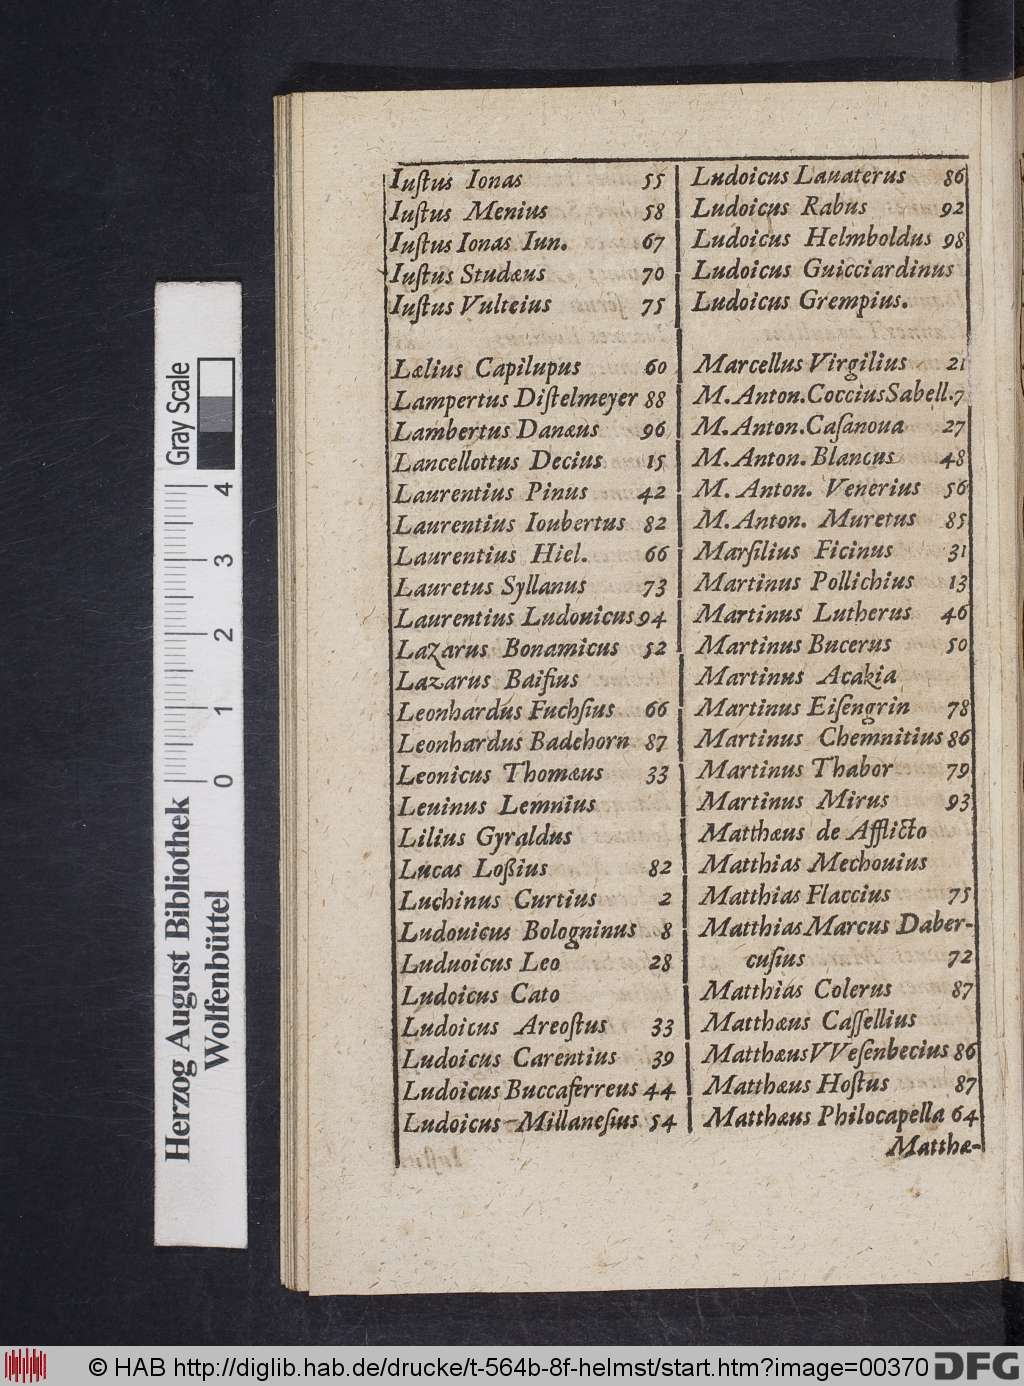 Iuſtus Ionas 55
Iuſtus Menius 58
Iuſtus Ionas Iun. 67
Iuſtus Studæus 70
Iuſtus Vulteius 75
Lælius Capilupus 60
Lampertus Diſtelmeyer 88
Lambertus Danæus 96
Lancellottus Decius 15
Laurentius Pinus 42
Laurentius Ioubertus 82
Laurentius Hiel. 66
Lauretus Syllanus 73
Laurentius Ludouicus 94
Lazarus Bonamicus 52
Lazarus Baifius
Leonhardus Fuchſius 66
Leonhardus Badehorn 87
Leonicus Thomæus 33
Leuinus Lemnius
Lilius Gyraldus
Lucas Loßius 82
Luchinus Curtius 2
Ludouicus Bologninus 8
Luduoicus Leo 28
Ludoicus Cato
Ludoicus Areoſtus 33
Ludoicus Carentius 39
Ludoicus Buccaferreus 44
Ludoicus Millaneſius 54
Ludoicus Lauaterus 86
Ludoicus Rabus 92
Ludoicus Helmboldus 98
Ludoicus Guicciardinus
Ludoicus Grempius.
Marcellus Virgilius 21
M. Anton. Coccius Sabell. 7
M. Anton. Caſanoua 27
M. Anton. Blancus 48
M. Anton. Venerius 56
M. Anton. Muretus 85
Marſilius Ficinus 31
Martinus Pollichius 13
Martinus Lutherus 46
Martinus Bucerus 50
Martinus Acakia
Martinus Eiſengrin 78
Martinus Chemnitius 86
Martinus Thabor 79
Martinus Mirus 93
Matthæus de Afflicto
Matthias Mechouius
Matthias Flaccius 75
Matthias Marcus Daber-
cuſius 72
Matthias Colerus 87
Matthæus Caſſellius
Matthæus VVeſenbecius 86
Matthæus Hoſtus 87
Matthæus Philocapella 64
Matthæ-
Herzog August Bibliothek
Wolfenbüttel
0 1 2 3 4
Gray Scale
© HAB http://diglib.hab.de/drucke/t-564b-8f-helmst/start.htm?image=00370 DFG